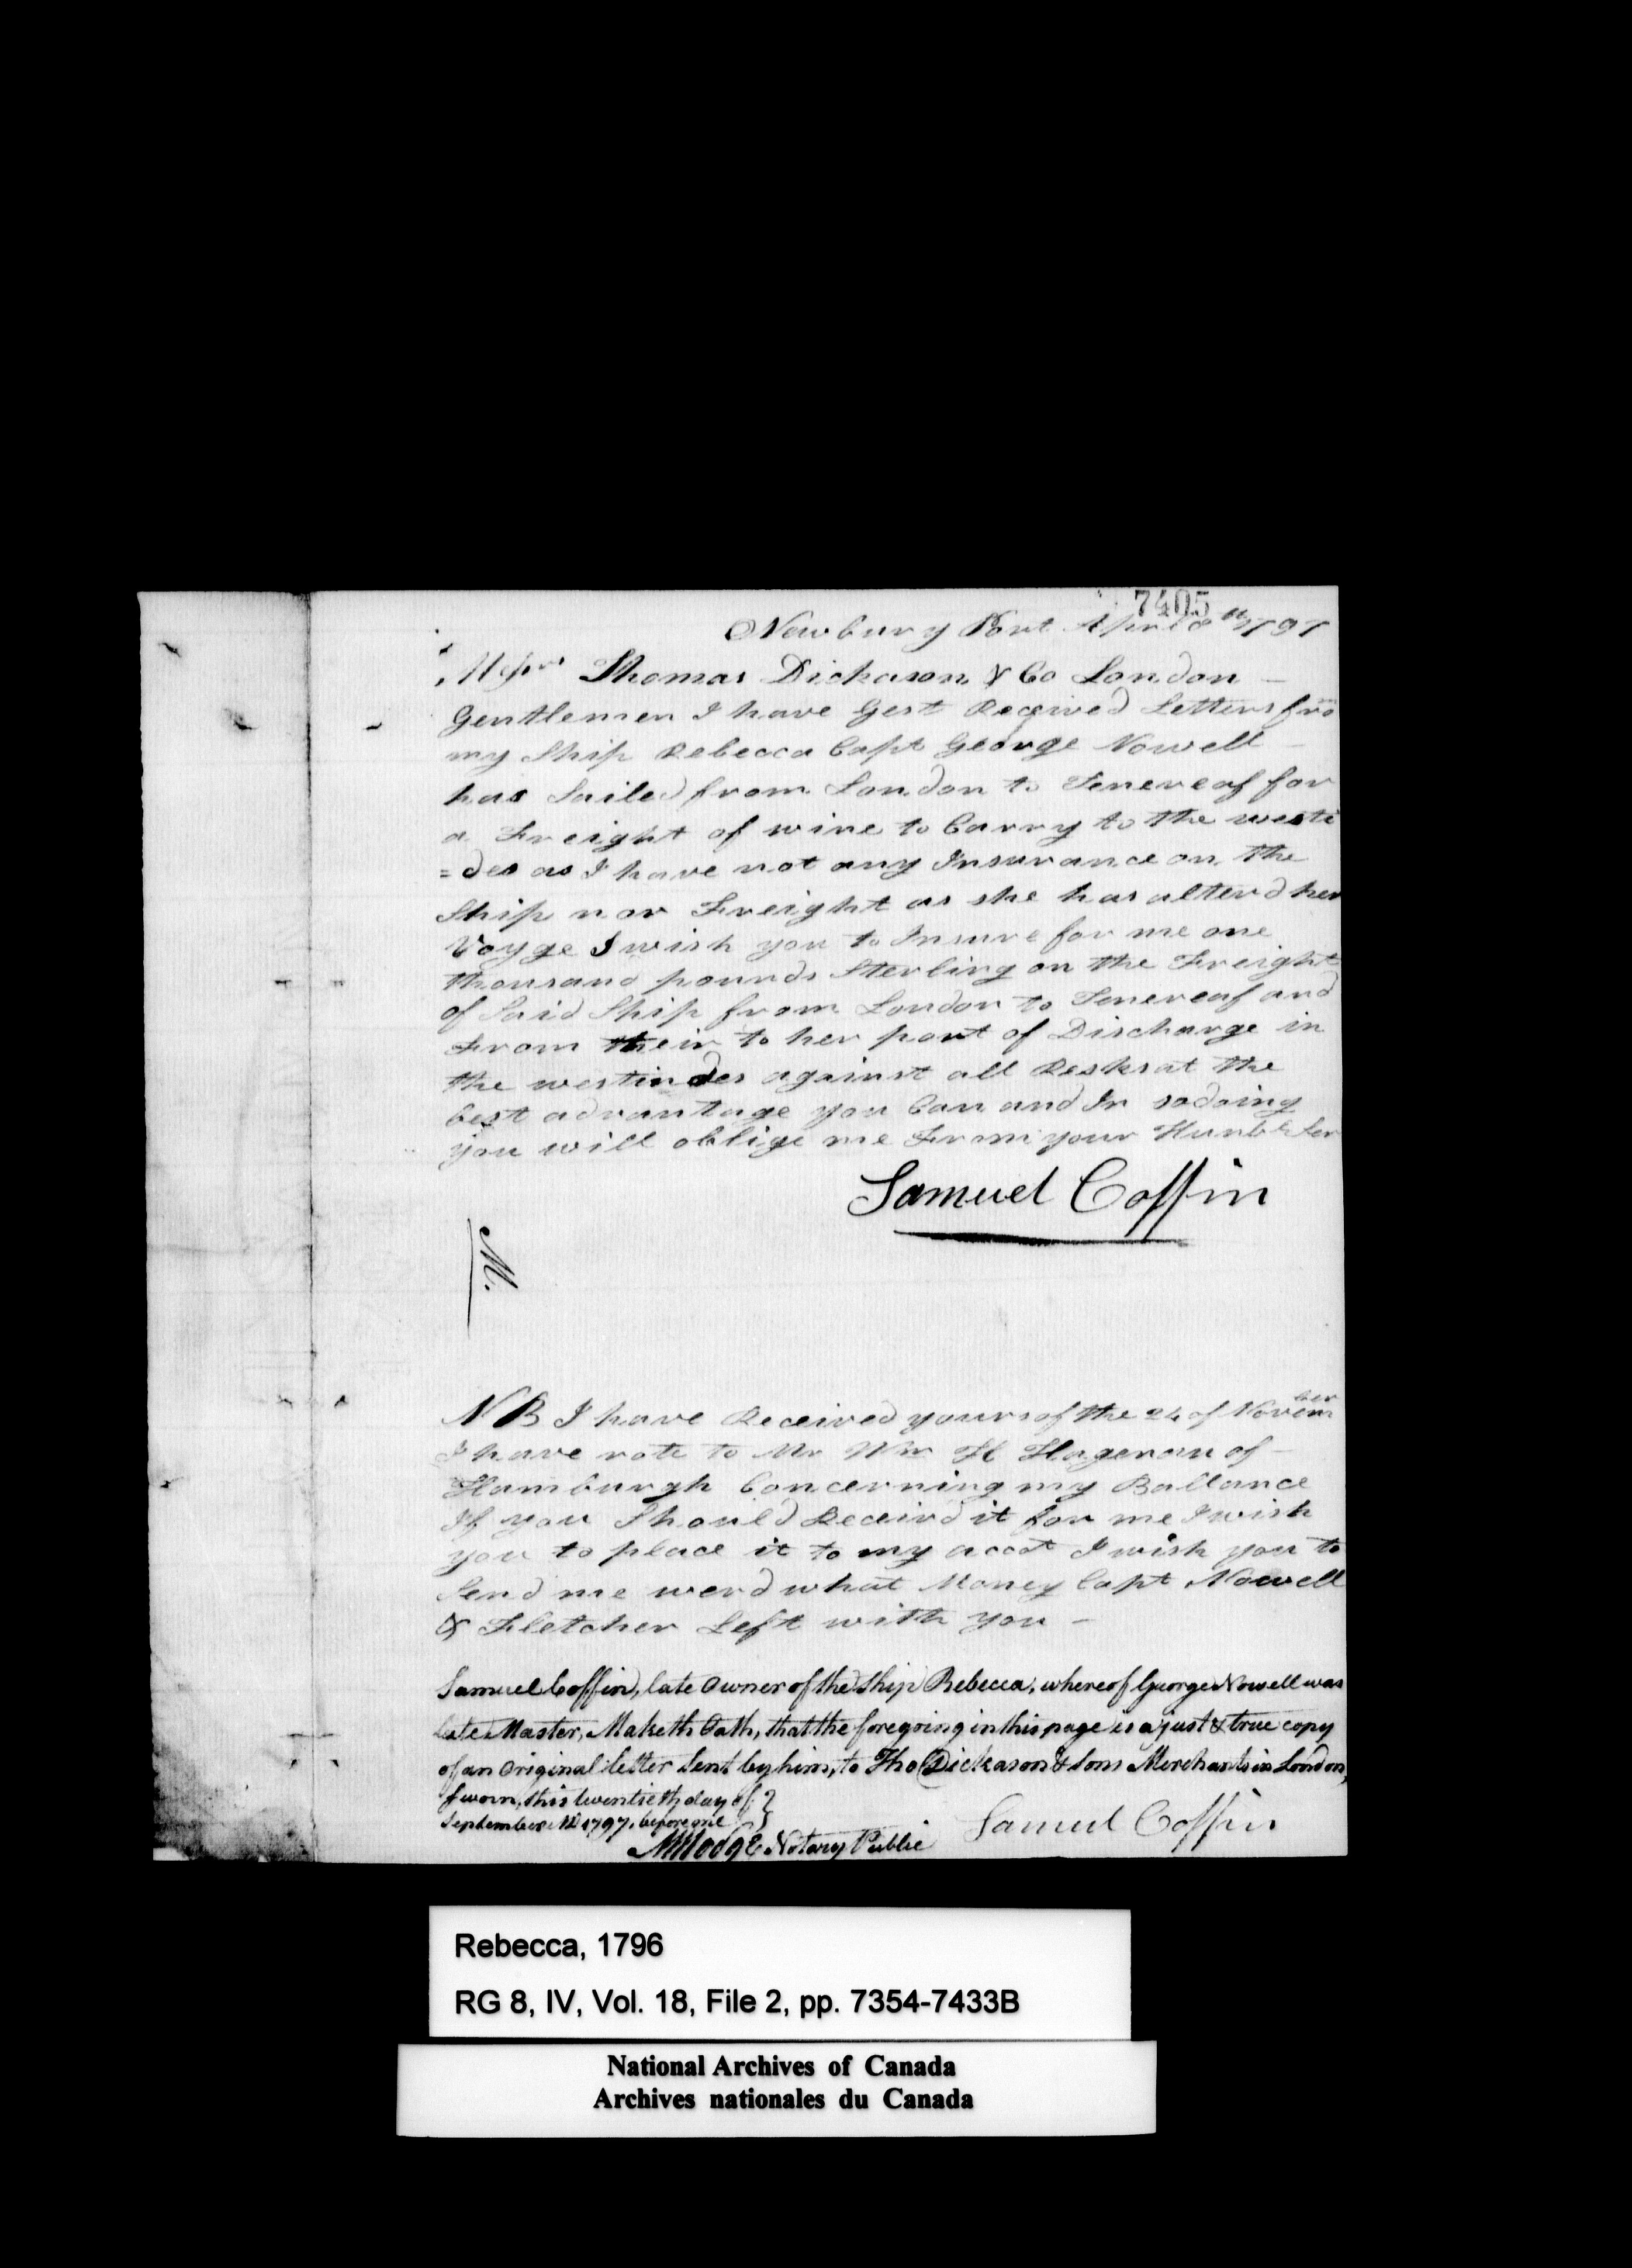 7405
Newbury Port April 8th 1797
Messrs Thomas Dickason & Co London —
Gentlemen I have Gest Received Letters fro
my Ship Rebecca Capt George Nowell —
has Sailed from London to Tenereaf for
a Freight of wine to Carry to the westi
=des as I have not any Insurance on the
Ship nor Freight as she has alterd her
Voyge I wish you to Insure for me one
thousand pounds Sterling on the Freight
of Said Ship from London to Tenereaf and
From their to her port of Discharge in
the westindes against all Resks at the
best advantage you Can and In sodoing
you will oblige me From your Humble Ser
Samuel Coffin
M.
NB I have Received yours of the 24 of November
I have rote to Mr Wm H Hageman of —
Hamburgh Concerning my Ballance
If you Should Receivd it for me I wish
you to place it to my accot I wish you to
Send me werd what Money Capt Nowell
& Fletcher Left with you —
Samuel Coffin, late Owner of the Ship Rebecca, whereof George Nowell was
late Master, Maketh Oath, that the foregoing in this page is a just & true copy
of an Original letter Sent by him, to Tho Dickason & Sons Merchants in London,
Sworn, this twentieth day of }
September AD 1797, before me }
Samuel Coffin
M Hodge Notary Public
Rebecca, 1796
RG 8, IV, Vol. 18, File 2, pp. 7354-7433B
National Archives of Canada
Archives nationales du Canada